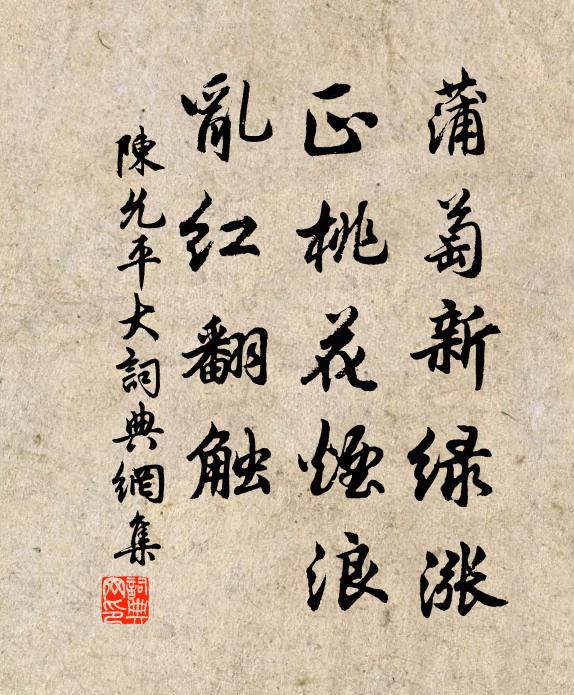 蒲萄新绿涨
正桃花烟浪
亂红翻触
陳允平大詞典網集
詞典网印